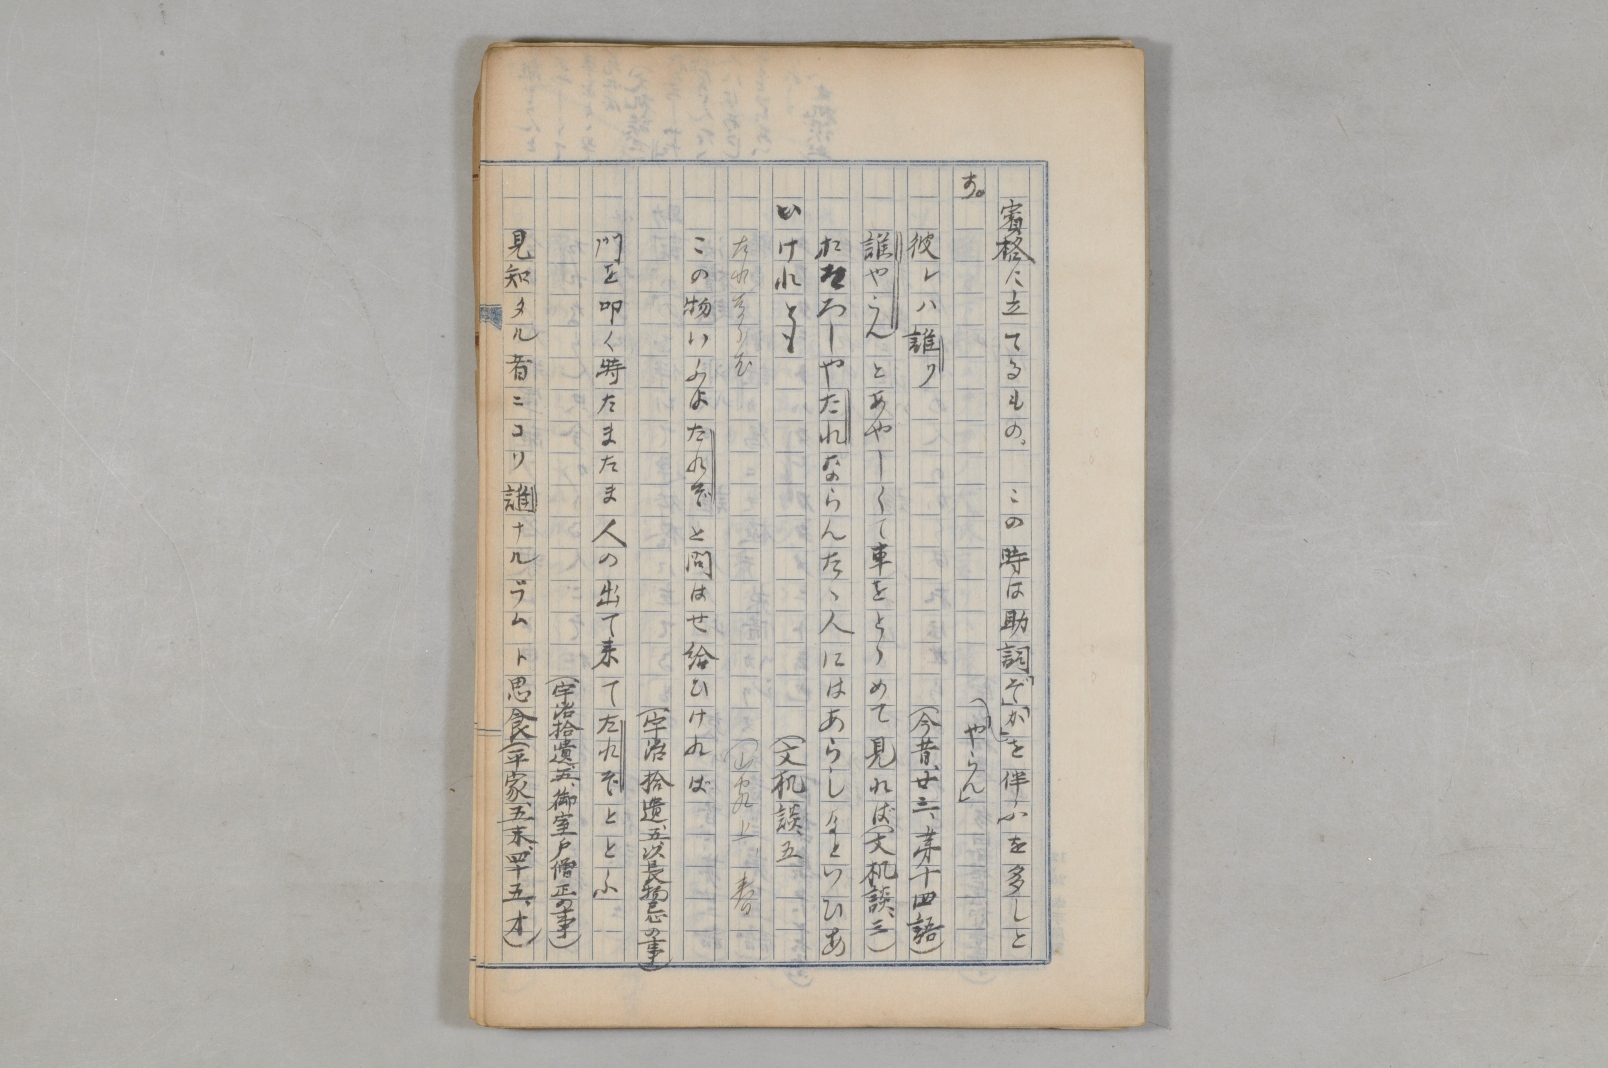 賓格に立てるもの。この時は助詞「ぞ」「か」を伴ふを多しと
す。
(「やらん」
彼レハ誰ソ(今昔、廿三、第十四語)
誰やらんとあやしくて車をとゝめて見れば(文机談、三)
おそろしやたれならんたゝ人にはあらしなといひあ
ひけれとも(文机談、五
この物いふよたれぞと問はせ給ひければ
(宇治拾遺、五、以長物忌の事)
門を叩く時たまたま人の出て来てたれぞととふ
(宇治拾遺、五、御室戸僧正の事)
見知タル者ニコソ誰ナルラムト思食(平家、五末、四十五、オ)